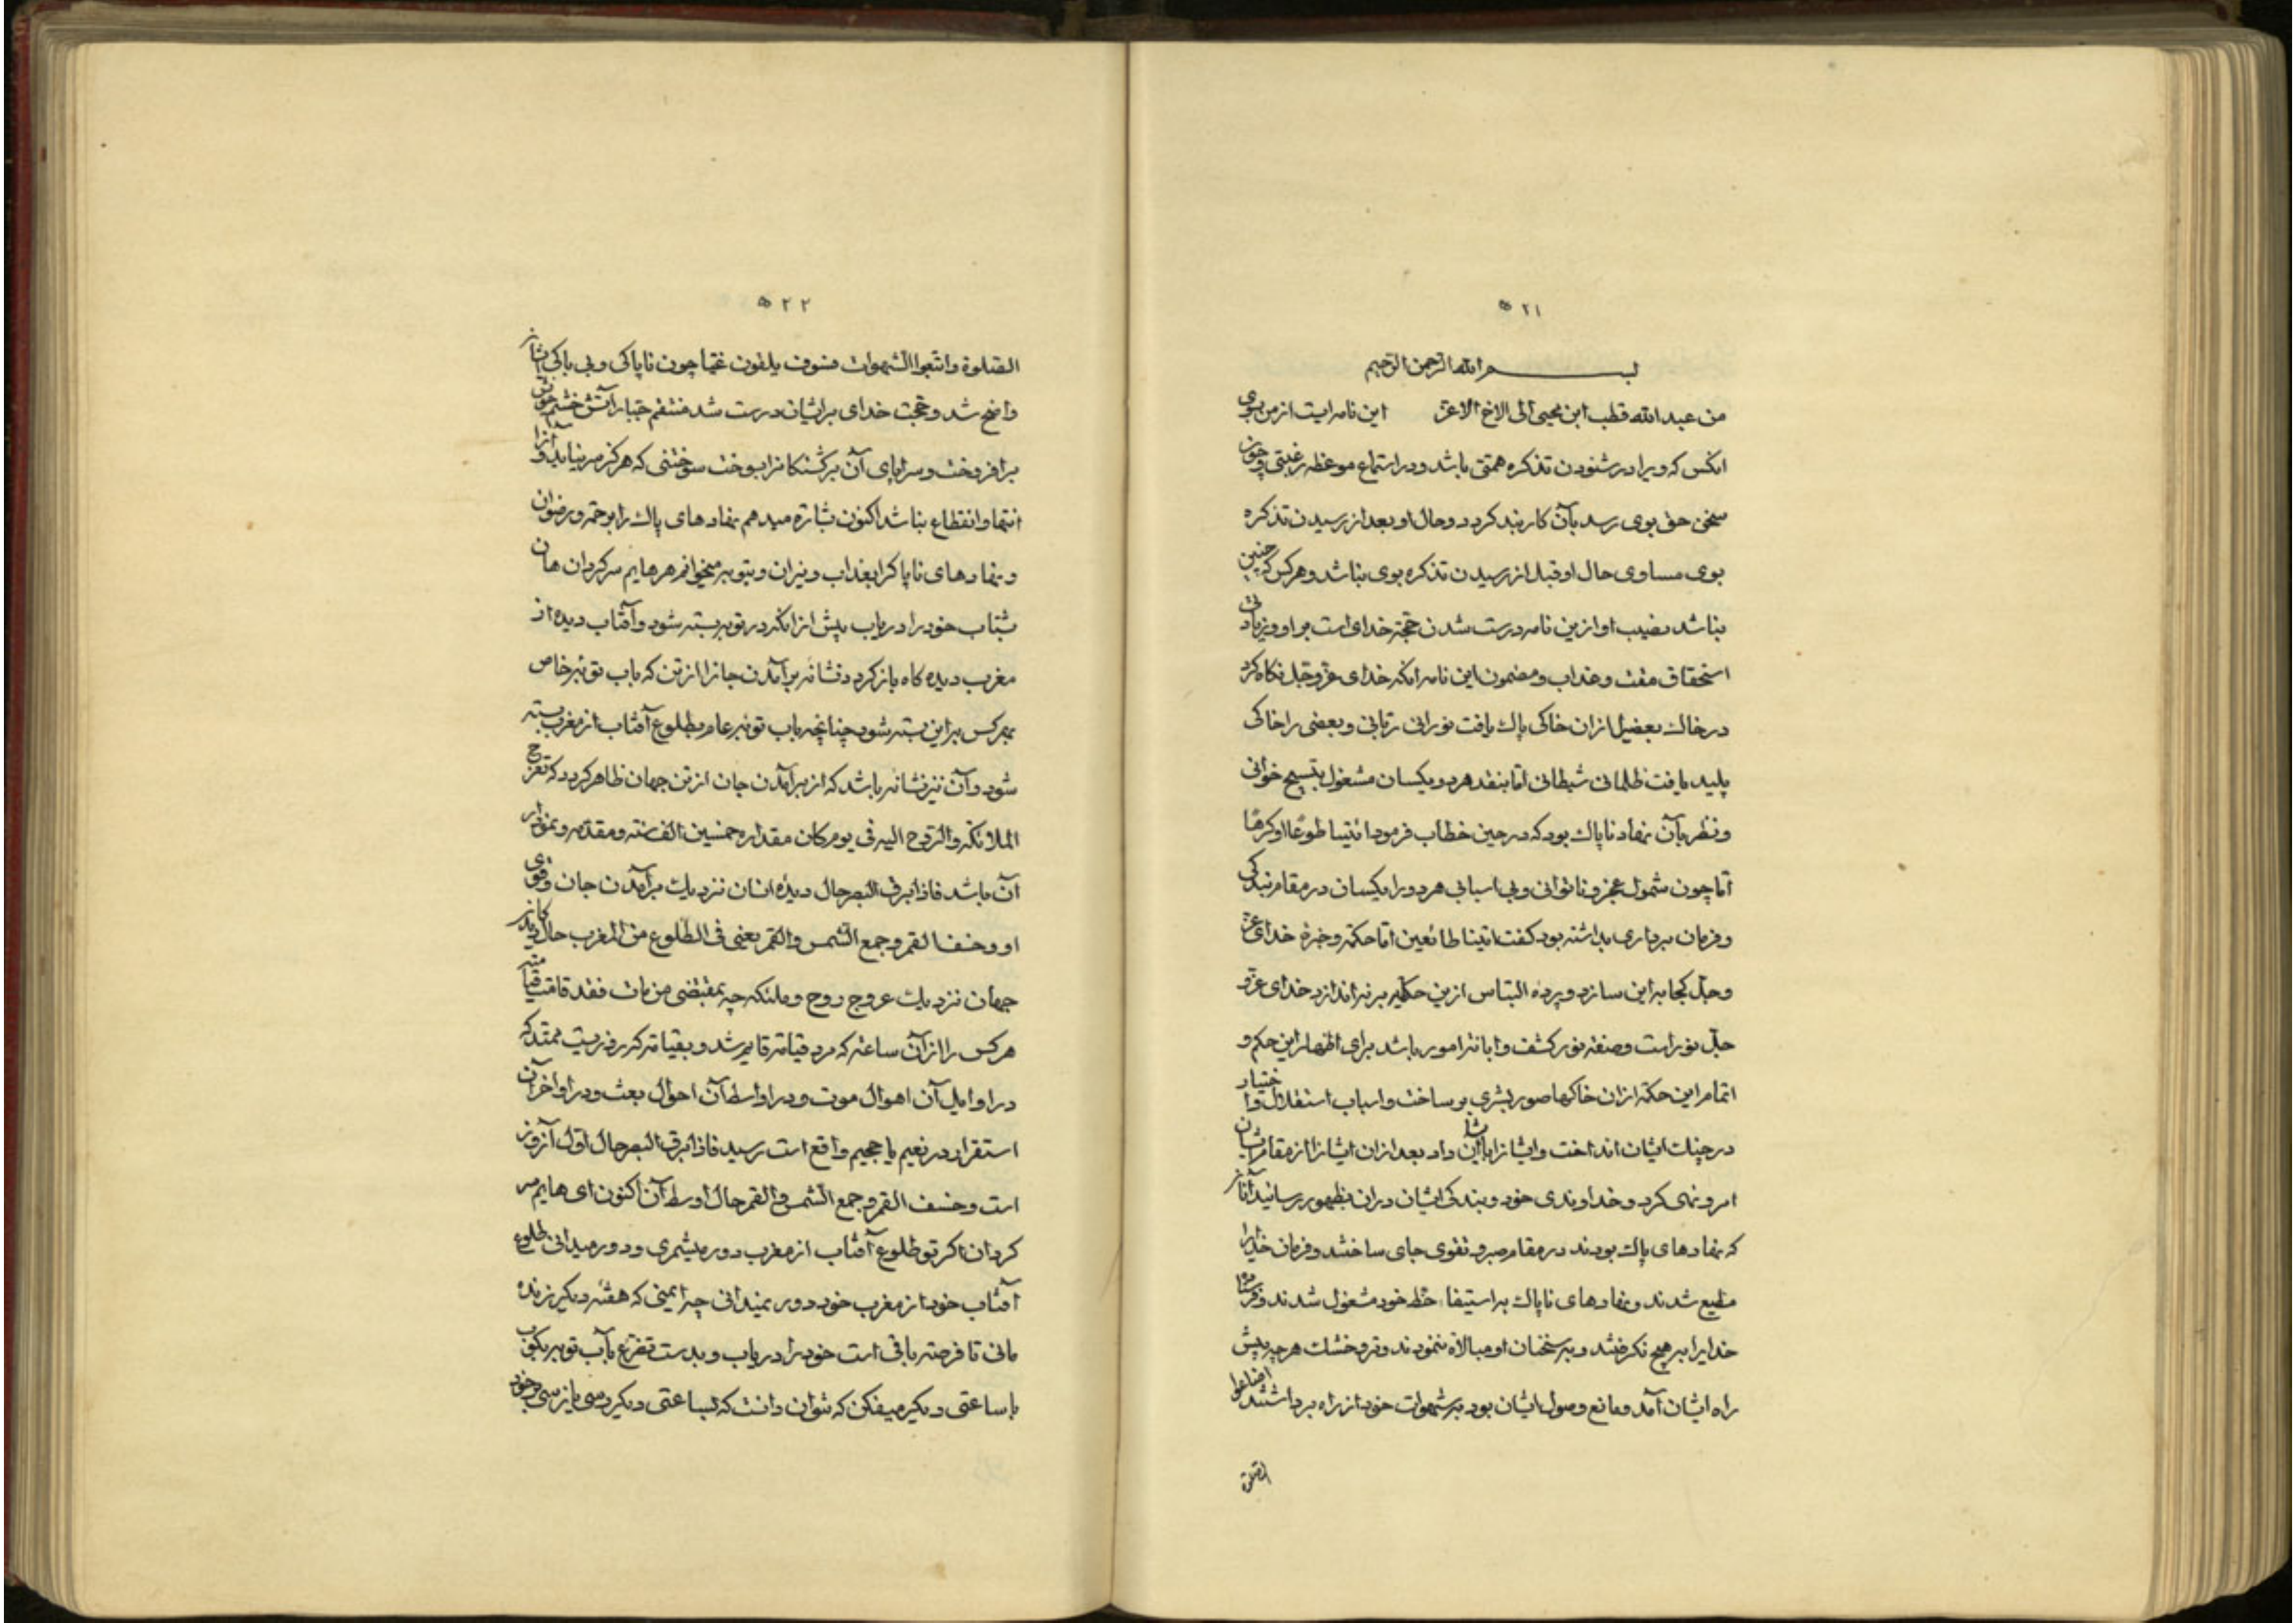 ۵۲۱
بسم الله الرحمن الرحیم
من عبد الله قطب ابن یحیی الی الاخ الاعز این نامه ایست از من بسوی
انکس که ویرا در شنودن تذکره همتی باشد و در استماع موعظه رغبتی و چون
سخن حق بوی رسد بآن کاربند کردد و حال او بعد از رسیدن تذکره
بوی مساوی حال او قبل از رسیدن تذکره بوی نباشد و هر کس که چنین
نباشد نصیب او ازین نامه درست شدن حجة خدای است بر او و زیادتی
استحقاق مقت و عذاب و مضمون این نامه انکه خدای عز و جل نکاه کرد
در خاک بعضی را از ان خاکی پاک یافت نورانی ربانی و بعضی را خاکی
پلید یافت ظلمانی شیطانی اما بنقد هر دو یکسان مشغول بتسبیح خوانی
و نظر بآن نهاد ناپاک بود که در حین خطاب فرمود ائتیا طوعا او کرها
اما چون شمول عجز و ناتوانی و بی اسبابی هر دو را یکسان در مقام بندکی
و فرمان برداری بداشته بود کفت اتینا طائعین اما حکمة و خبرة خدای عز
و جل کجا براین سازد و پرده التباس ازین حکایه بر نه اندازد خدای عز و
جل نور است و صنفه نور کشف و ابانة امور باشد برای اظهار این حکم و
اتمام این حکمة ازان خاکها صور بشری بر ساخت و اسباب استقلال و اختیار
در جبلت ایشان انداخت و ایشانرا باایشان داد بعد ازان ایشانرا از مقام ایشان
امر و نهی کرد و خداوندی خود و بندکی ایشان دران بظهور رسانید آنانکه
که نهادهای پاک بودند در مقام صبر و تقوی جای ساختند و فرمان خدایرا
مطیع شدند و نهادهای ناپاک براستیفاء حظ خود مشغول شدند و فرمان
خدایرا بر هیچ نکرفتند و بر سخنان او مبالاة ننمودند و تر و خشک هر چه پیش
راه ایشان آمد و مانع وصول ایشان بود بر شهوات خود از راه برداشتند اضاعوا
الصلوة
۵۲۲
الصلوة و اتبعوا الشهوات فسوف یلقون غیا چون ناپاکی و بی باکی ایشان
واضح شد و حجت خدای بر ایشان درست شد منتقم جبار آتش خشم خود
برافروخت و سراپای آن برکشتکانرا بسوخت سوختنی که هرکز سر نیاید و آنرا
انتها و انقطاع نباشد اکنون بشارة میدهم نهادهای پاک را برحمة و رضوان
و نهادهای ناپاکرا بعذاب و نیران و بتوبه میخوانم هر هایم سرکردان هان
بشتاب خود را دریاب پیش از انکه در توبه بسته شود و آفتاب دیده از
مغرب دیده کاه باز کردد نشانه برآمدن جانرا از تن که باب توبه خاص
بهر کس براین بسته شود چنانچه باب توبه عام بطلوع آفتاب از مغرب بسته
شود و آن نیز نشانه باشد که از برآمدن جان از تن جهان ظاهر کردد که تعرج
الملائکة و الروح الیه فی یوم کان مقداره خمسین الف سنة و مقدمه و نمودار
آن باشد فاذا برق البصر حال دیده انسان نزدیک برآمدن جان و قوی
او و خسف القمر و جمع الشمس و القمر یعنی فی الطلوع من المغرب حال
جهان نزدیک عروج روح و ملئکه چه بمقتضی من مات فقد قامت قیامته
هر کس را ازان ساعة که مرد قیامة قایم شد و بقیامة که روزیست ممتد که
در اوایل آن اهوال موت و در اواسط آن احوال بعث و در اواخر آن
استقرار در نعیم یا جحیم واقع است رسید فاذا برق البصر حال اول آنروز
است و خسف القمر و جمع الشمس و القمر حال اوسط آن اکنون ای هایم سر
کردان اکر تو طلوع آفتاب از مغرب دور میشمری و دور میدانی طلوع
آفتاب خود از مغرب خود دور نمیدانی چه ایمنی که هفته دیکر زنده
مانی تا فرصة باقی است خود را دریاب و بدست تضرع باب توبه بکوب
با ساعتی دیکر میفکن که نتوان دانست که بساعتی دیکر رسی یا نرسی